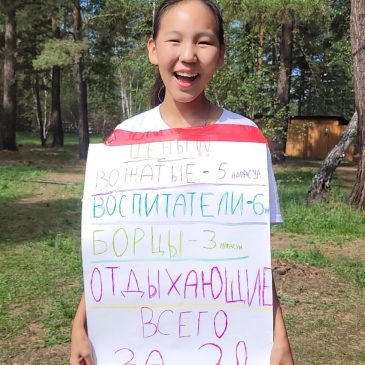 ЦЕНЫ!!!
ВОЖАТЫЕ - 5
ВОСПИТАТЕЛИ - 6
БОРЦЫ - 3
ОТДЫХАЮЩИЕ
ВСЕГО
ЗА 20